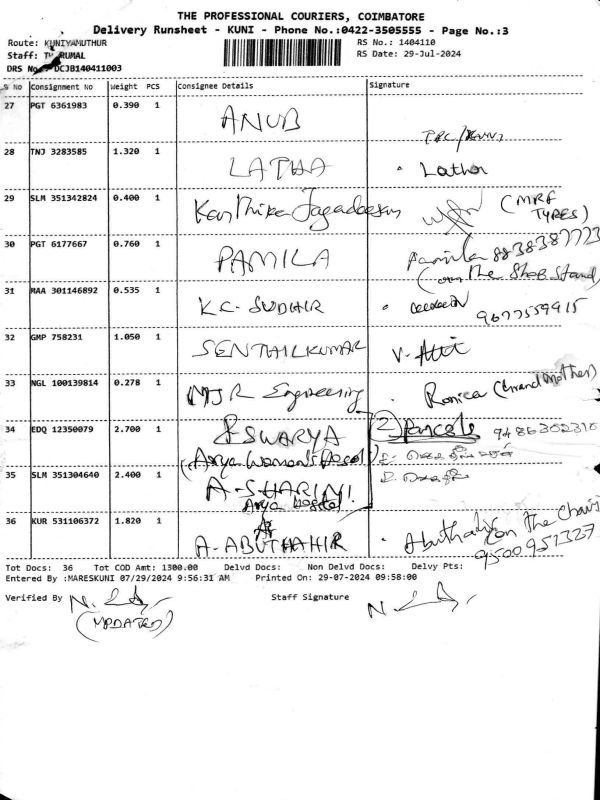 THE PROFESSIONAL COURIERS, COIMBATORE
Delivery Runsheet - KUNI - Phone No.:0422-3505555 - Page No.:3
Route: KUNIYAMUTHUR
RS No.: 1404110
Staff: RUMAL
RS Date: 29-Jul-2024
DRS No.: DCJB140411003
S No Consignment No Weight PCS Consignee Details Signature
27 PGT 6361983 0.390 1 ANUB
28 TNJ 3283585 1.320 1 LATHA Latha
29 SLM 351342824 0.400 1 Karthika Jagadeesan (MRF TYRES)
30 PGT 6177667 0.760 1 PAMILA Pamila 8838387723
(on The Shop Stand)
31 MAA 301146892 0.535 1 K.C. SUDHIR 9677559915
32 GMP 758231 1.050 1 SENTHILKUMAR
33 NGL 100139814 0.278 1 MJR Engineering (Grand Mother)
34 EDQ 12350079 2.700 1 SWARYA (2) Parcels 9486302310
(Arya Women's Hostel)
35 SLM 351304640 2.400 1 A-SHARINI
Arya Hostel
36 KUR 531106372 1.820 1 A-ABUTHAHIR Abuthahir (on The Chair)
9500951327
Tot Docs: 36 Tot COD Amt: 1300.00 Delvd Docs: Non Delvd Docs: Delvy Pts:
Entered By :MARESKUNI 07/29/2024 9:56:31 AM Printed On: 29-07-2024 09:58:00
Verified By Staff Signature
(UPDATED)